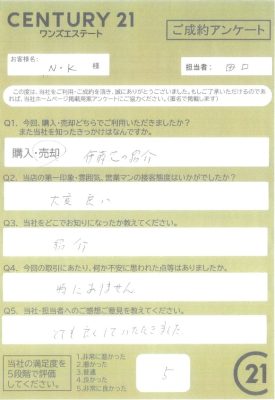 CENTURY 21
ワンズエステート
ご成約アンケート
お客様名:
N・K 様
担当者: 田口
この度は、当社をご利用・ご成約を頂き、誠にありがとうございました。もしご了承いただけるのであ
れば、当社ホームページ掲載発案アンケートにご協力ください。(匿名で掲載します)
Q1. 今回、購入・売却どちらでご利用いただきましたか?
また当社を知ったきっかけはなんですか。
購入・売却
の紹介
Q2. 当店の第一印象・雰囲気、営業マンの接客態度はいかがでしたか?
大変良い
Q3. 当社をどこでお知りになったか教えてください。
紹介
Q4. 今回の取引にあたり、何か不安に思われた点等はありましたか。
特にありません
Q5. 当社・担当者へのご感想ご意見を教えてください。
とても良くしていただきました
当社の満足度を
5段階で評価
してください。
1.非常に悪かった
2.悪かった
3.普通
4.良かった
5.非常に良かった
5
C21